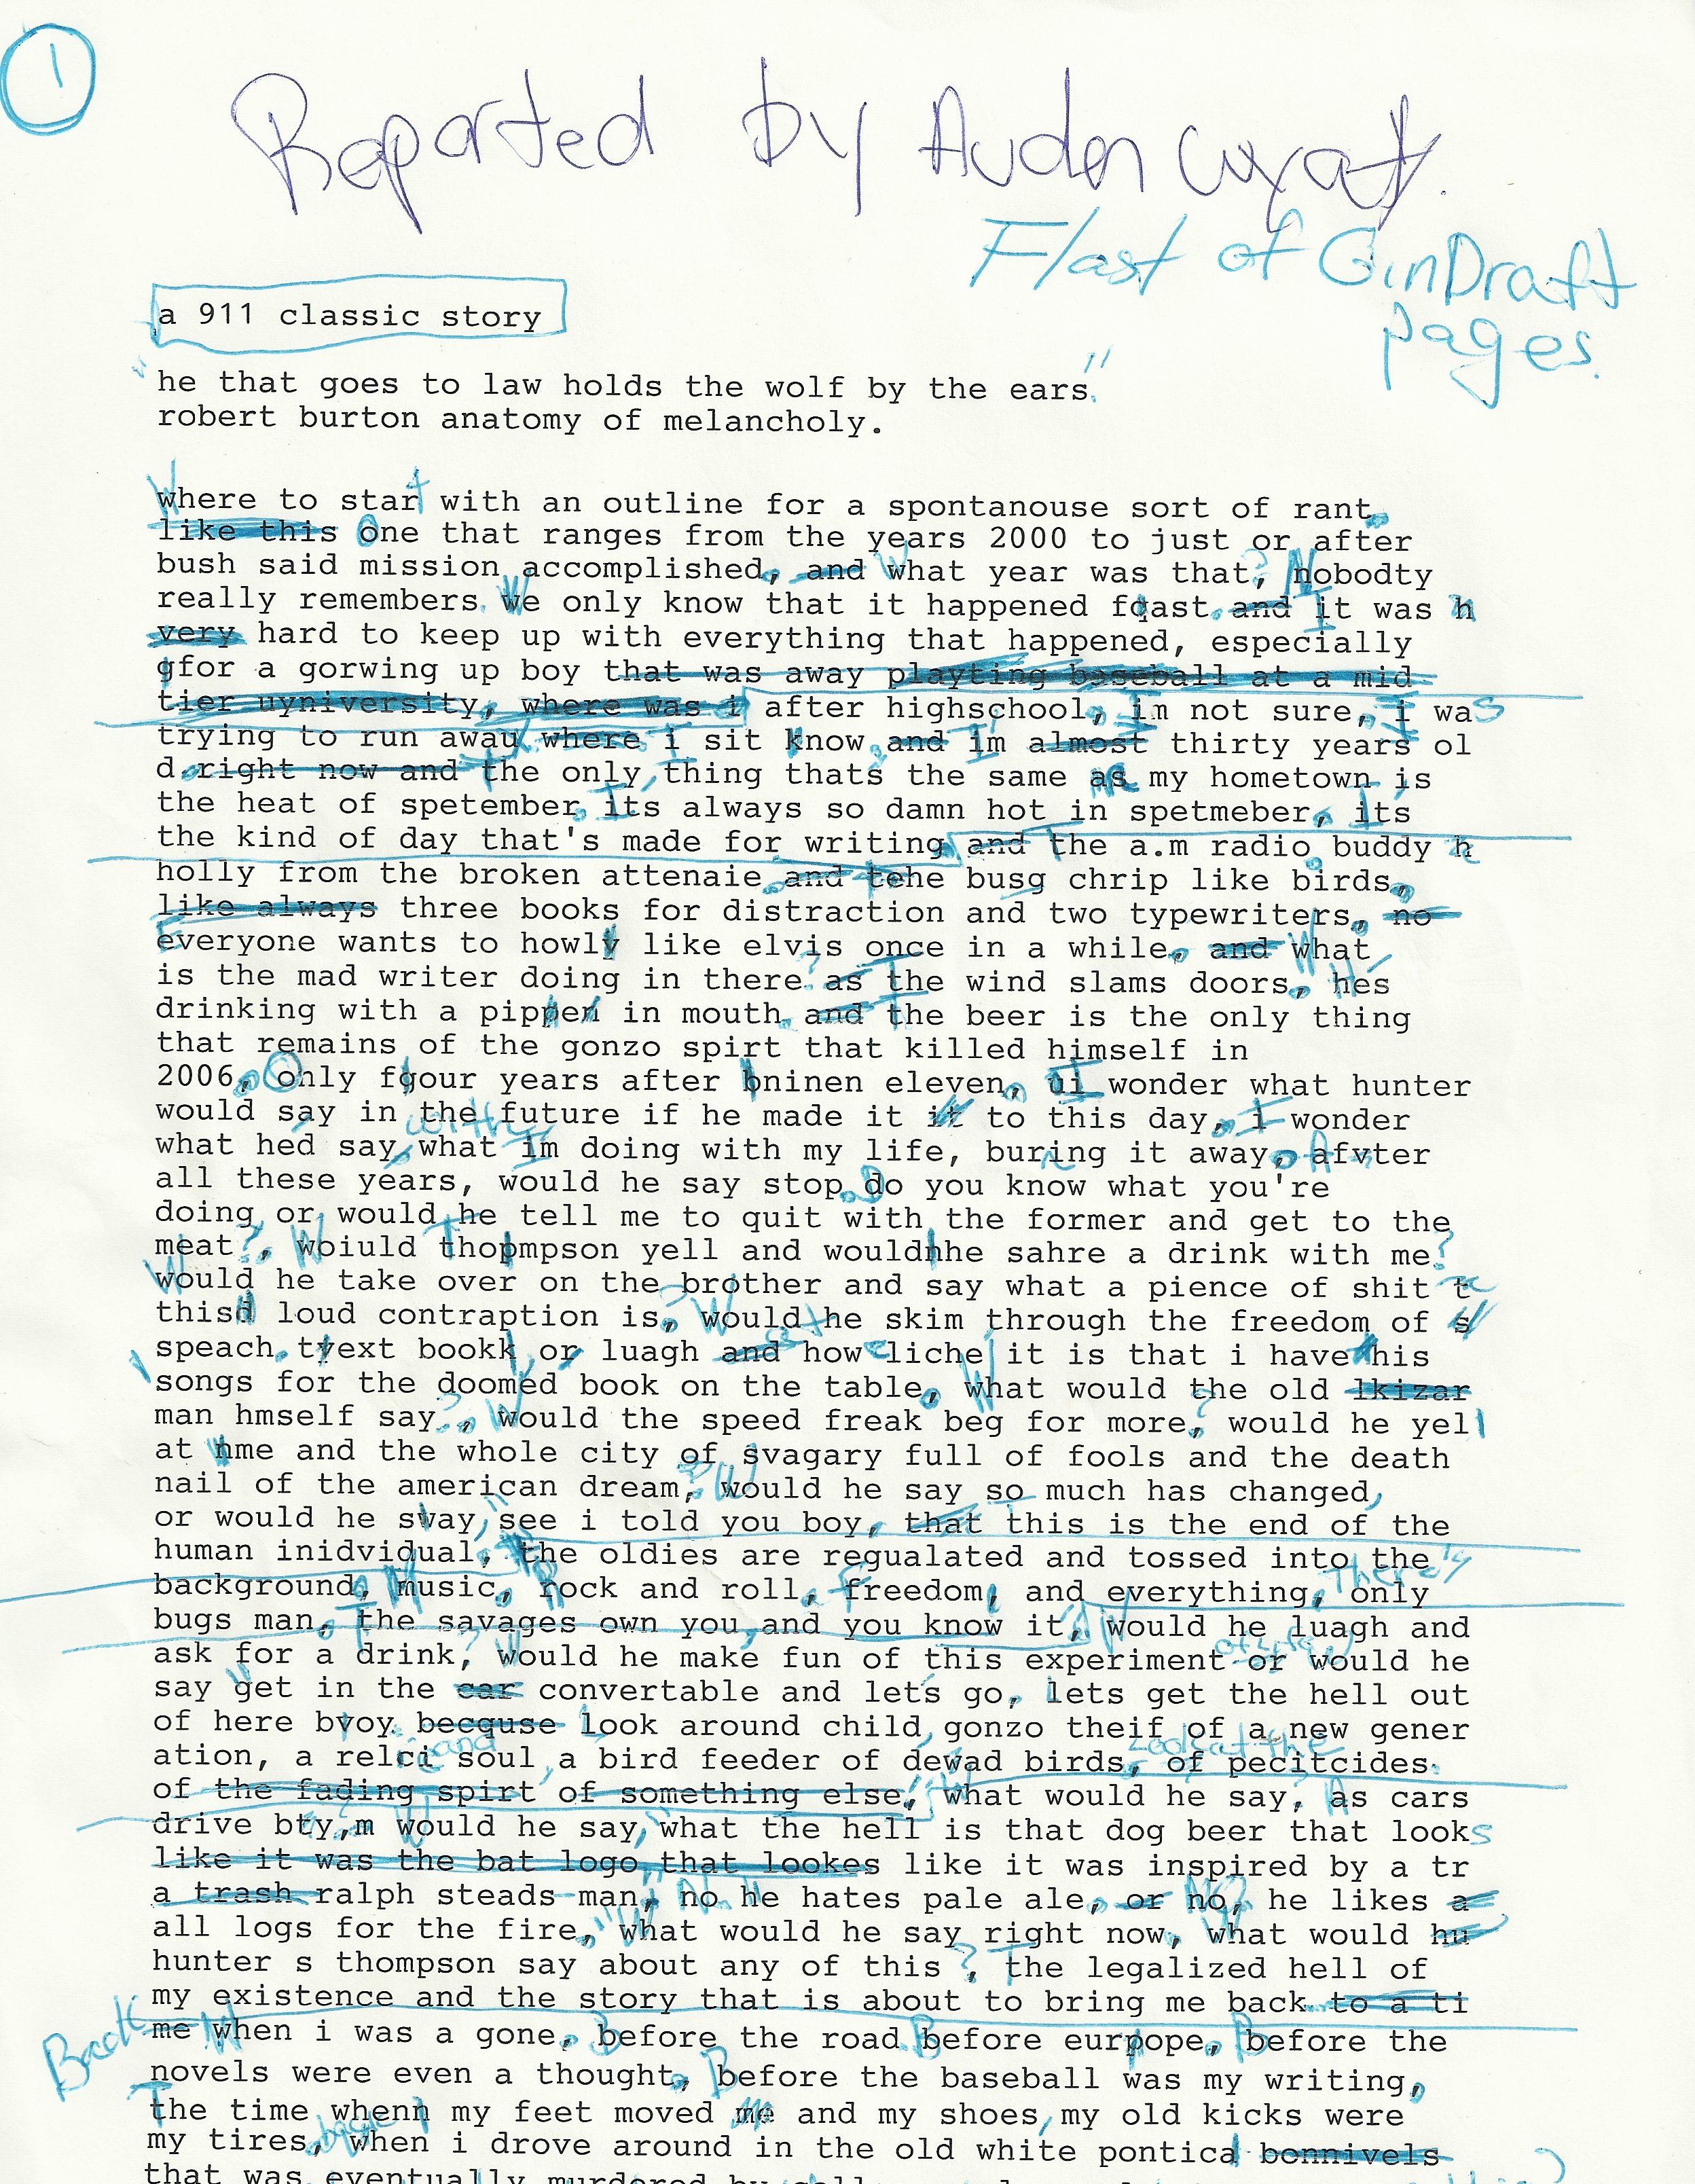 1
Reported by Auden Wyatt.
F/ast of GinDraft
pages.
a 911 classic story
"he that goes to law holds the wolf by the ears."
robert burton anatomy of melancholy.
where to start with an outline for a spontanouse sort of rant
like this one that ranges from the years 2000 to just or after
bush said mission accomplished, and what year was that, nobodty
really remembers. we only know that it happened fqast. and it was h
very hard to keep up with everything that happened, especially
gfor a gorwing up boy that was away playting baseball at a mid
tier uyniversity, where was i after highschool, im not sure, i was
trying to run awau where i sit know and im almost thirty years ol
d right now and the only thing thats the same as my hometown is
the heat of spetember its always so damn hot in spetmeber, its
the kind of day that's made for writing and the a.m radio buddy h
holly from the broken attenaie and tehe busg chrip like birds,
like always three books for distraction and two typewriters, no
everyone wants to howly like elvis once in a while, and what
is the mad writer doing in there as the wind slams doors, hes
drinking with a pippen in mouth and the beer is the only thing
that remains of the gonzo spirt that killed himself in
2006, only fgour years after bninen eleven, ui wonder what hunter
would say in the future if he made it it to this day, i wonder
with
what hed say what im doing with my life, buring it away, afvter
all these years, would he say stop do you know what you're
doing or would he tell me to quit with the former and get to the
meat?, woiuld thopmpson yell and wouldhhe sahre a drink with me?
would he take over on the brother and say what a pience of shit t
thisd loud contraption is, would he skim through the freedom of s
at
speach. tyext bookk or luagh and how cliche it is that i have his
songs for the doomed book on the table, what would the old lkizar
man hmself say?, would the speed freak beg for more, would he yell
at hme and the whole city of svagary full of fools and the death
nail of the american dream, would he say so much has changed,
or would he svay see i told you boy, that this is the end of the
human inidvidual, the oldies are regualated and tossed into the
There's
background, music, rock and roll, freedom, and everything, only
bugs man, the savages own you and you know it, would he luagh and
ask for a drink, would he make fun of this experiment or would he
say get in the car convertable and let's go, lets get the hell out
of here bvoy. becquse look around child gonzo theif of a new gener
and Look at the
ation, a relci soul a bird feeder of dewad birds, of pecitcides.
of the fading spirt of something else, what would he say, as cars
drive bty,m would he say what the hell is that dog beer that looks
like it was the bat logo that lookes like it was inspired by a tr
a trash ralph steads-man, no he hates pale ale, or no, he likes a
all logs for the fire, what would he say right now, what would hu
hunter s thompson say about any of this?, the legalized hell of
my existence and the story that is about to bring me back to a ti
Back
me when i was a gone, before the road before eurpope, before the
novels were even a thought, before the baseball was my writing,
the time whenn my feet moved me and my shoes, my old kicks were
back
my tires, when i drove around in the old white pontica bonnivels
that was eventually murdered by